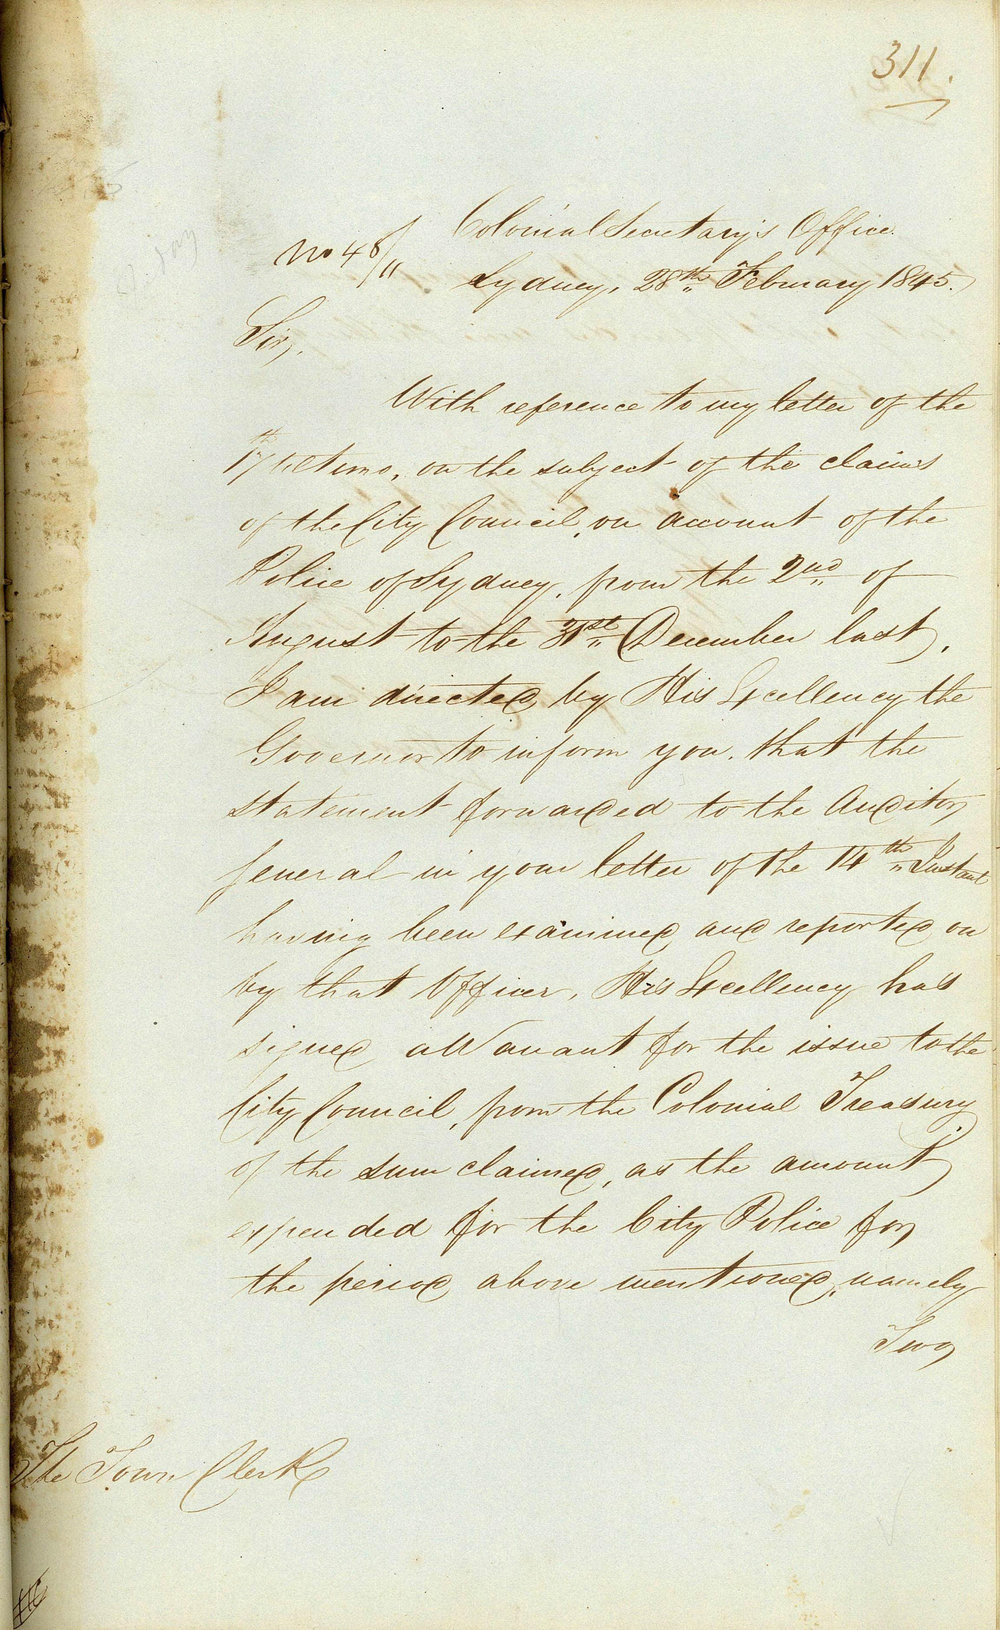 311.
Colonial Secretary's Office.
No 48/
Sydney, 28th February 1845.
Sir,
With reference to my letter of the
17th Ultimo, on the subject of the claims
of the City Council, on account of the
Police of Sydney, from the 2nd of
August to the 31st December last,
I am directed by His Excellency the
Governor to inform you, that the
statement forwarded to the Auditor
General in your letter of the 14th Instant
having been examined and reported on
by that Officer, His Excellency has
signed a Warrant for the issue to the
City Council, from the Colonial Treasury
of the sum claimed, as the amount
expended for the City Police for
the period above mentioned, namely
Two
The Town Clerk